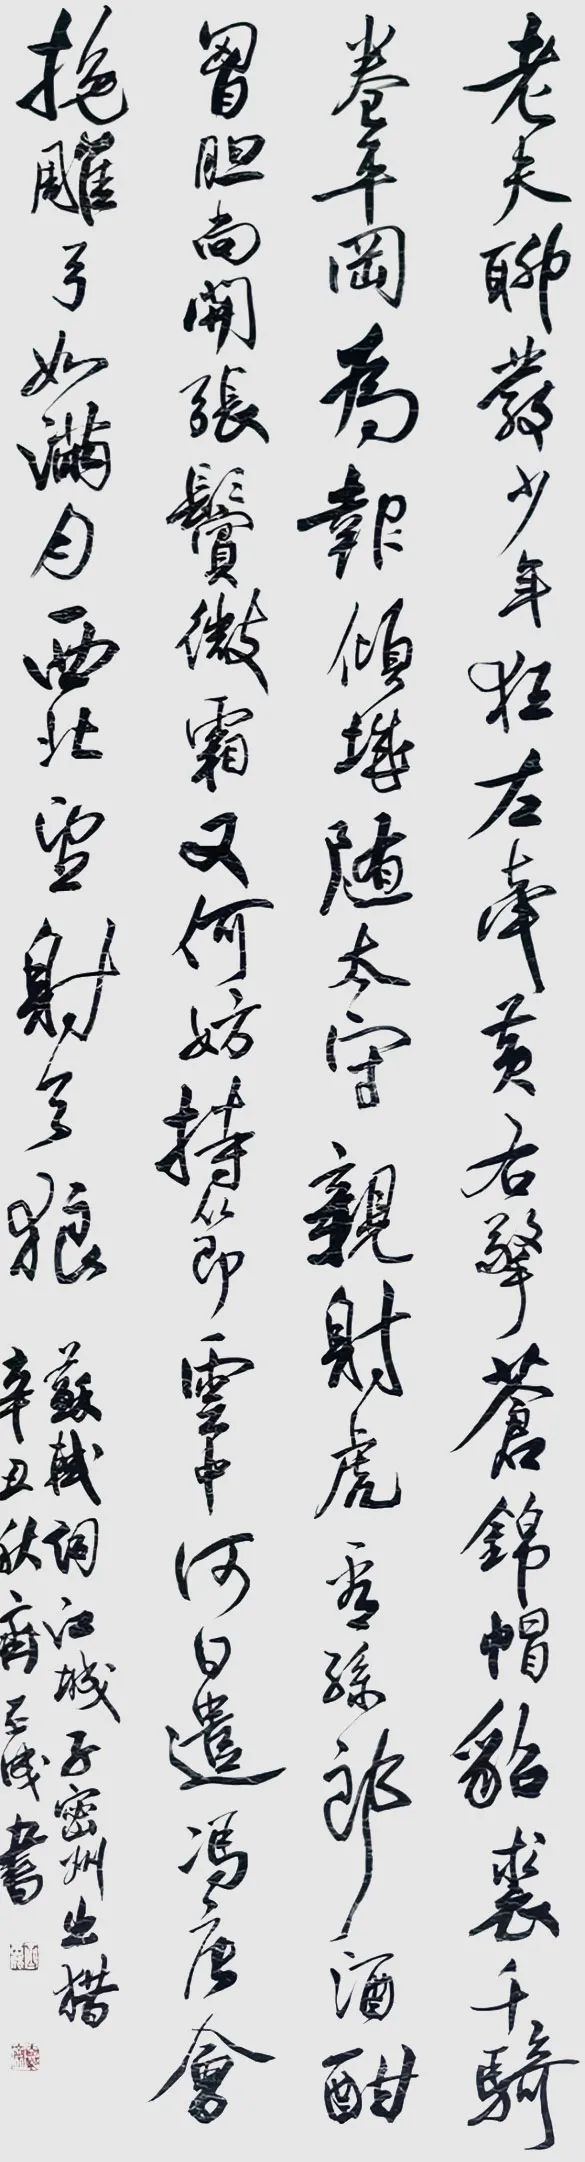 老夫聊發少年狂左牽黃右擎蒼錦帽貂裘千騎
卷平岡為報傾城随太守親射虎看孫郎酒酣
胷胆尚開張鬢微霜又何妨持節雲中何日遣馮唐會
挽雕弓如滿月西北望射天狼
蘇軾詞江城子密州出猎
辛丑秋齊書